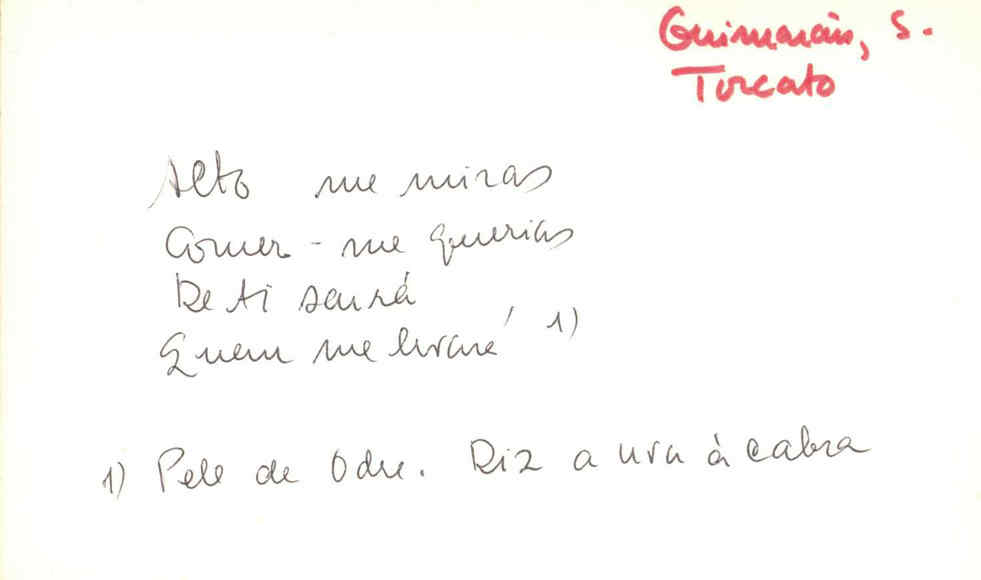 Guimarães, S.
Torcato
Alto me miras
Comer-me querias
De ti sairá
Quem me levará 1)
1) Pele de Odre. Diz a uva à cabra